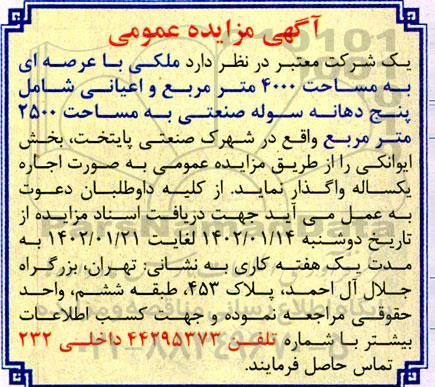 آگهی مزایده عمومی
یک شرکت معتبر در نظر دارد ملکی با عرصه ای
به مساحت ۴۰۰۰ متر مربع و اعیانی شامل
پنج دهانه سوله صنعتی به مساحت ۲۵۰۰
متر مربع واقع در شهرک صنعتی پایتخت، بخش
ایوانکی را از طریق مزایده عمومی به صورت اجاره
یکساله واگذار نماید. از کلیه داوطلبان دعوت
به عمل می آید جهت دریافت اسناد مزایده از
تاریخ دوشنبه ۱۴۰۲/۰۱/۱۴ لغایت ۱۴۰۲/۰۱/۲۱ به
مدت یک هفته کاری به نشانی: تهران، بزرگراه
جلال آل احمد، پلاک ۴۵۳، طبقه ششم، واحد
حقوقی مراجعه نموده و جهت کسب اطلاعات
بیشتر با شماره تلفن ۴۴۲۹۵۳۷۳ داخلی ۲۳۲
تماس حاصل فرمایند.